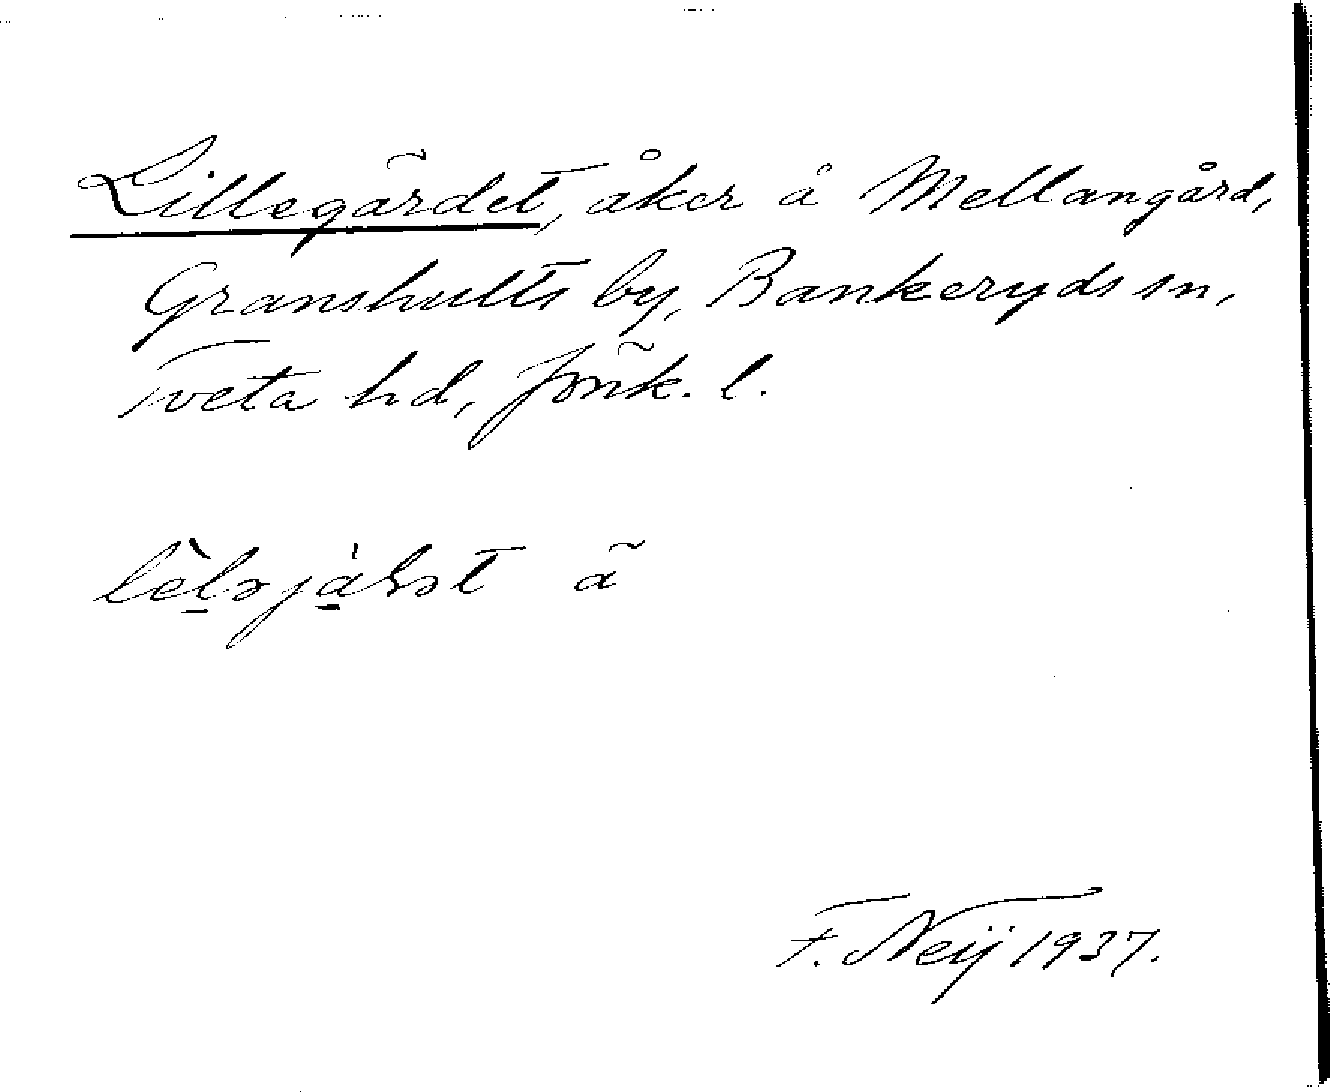 Lillegärdet, åker å Mellangård,
Granshults by, Bankeryds sn,
Tveta hd, Jönk. l.
F. Neij 1937.